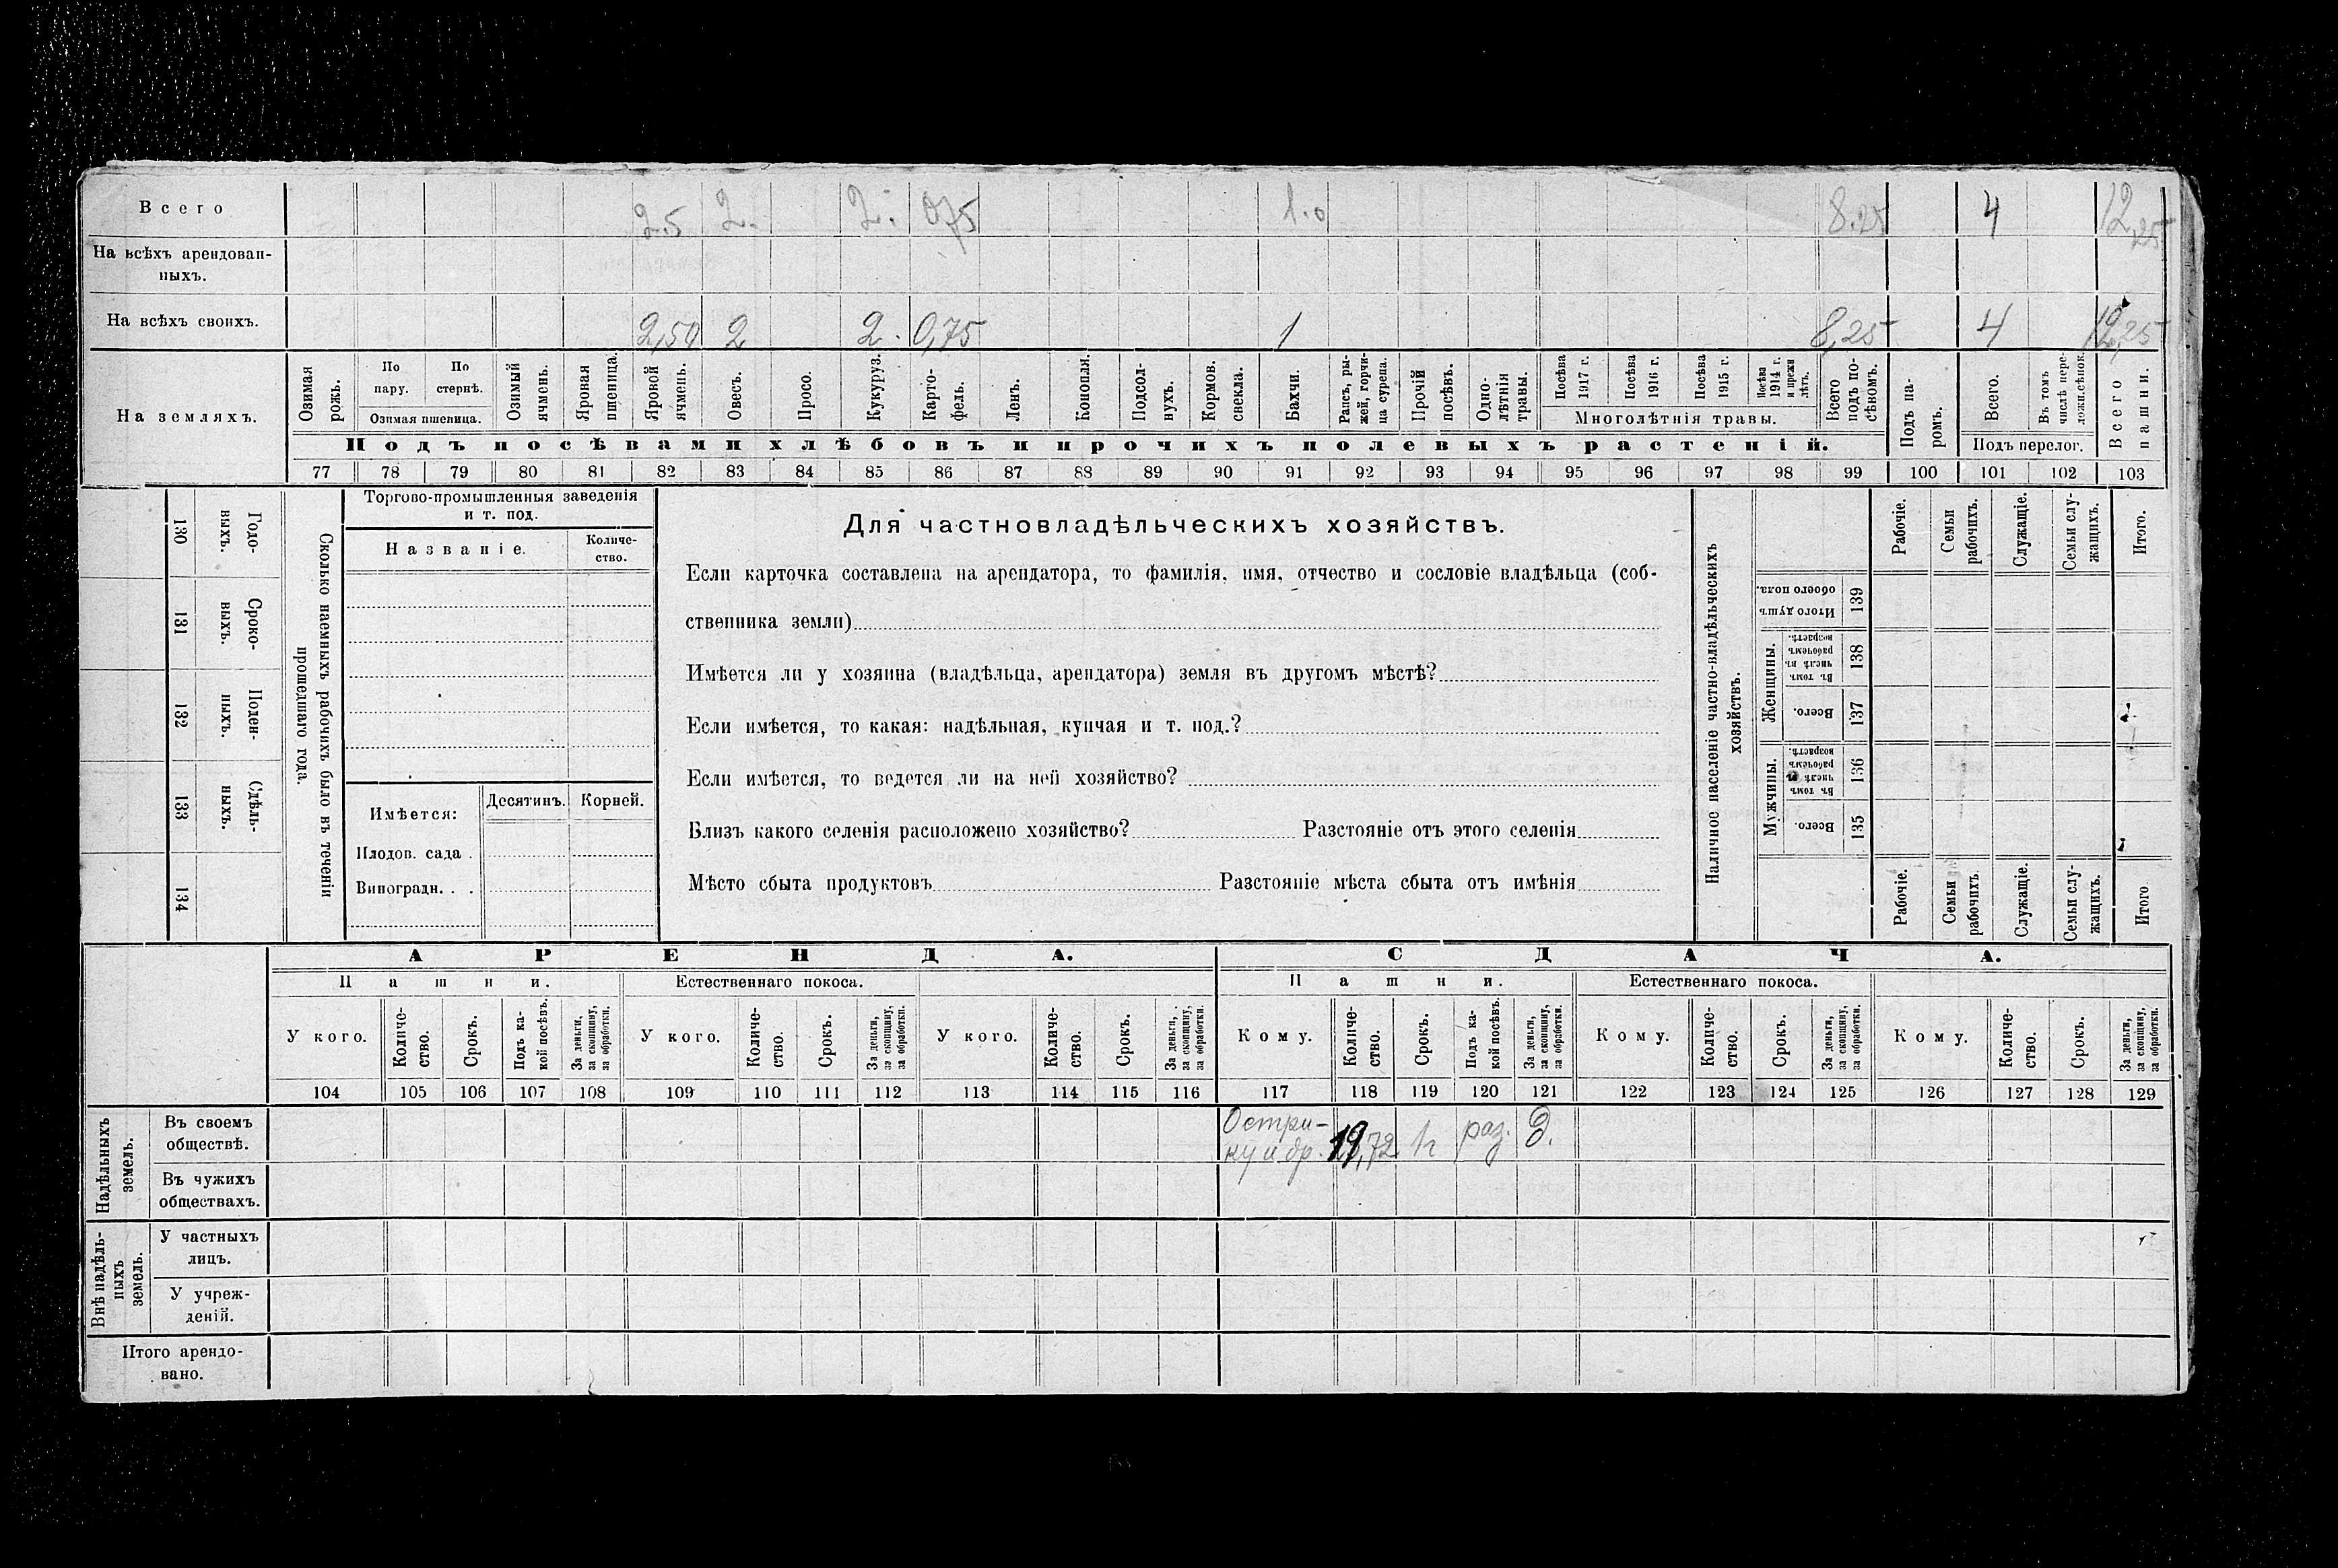 Всего 2.5 2. 2. 075 1.0 8.25 4 12,25
На всѣхъ арендован-
ныхъ.
На всѣхъ своихъ. 2,50 2 2. 0,75 1 8,25 4 12,25
На земляхъ.
Озимая рожь.
По пару.
По стернѣ.
Озимая пшеница.
Озимый ячмень.
Яровая пшеница.
Яровой ячмень.
Овесъ.
Просо.
Кукуруз.
Карто-
фель.
Ленъ.
Конопля.
Подсол-
нухъ.
Кормов. свекла.
Бахчи.
Рапсъ, ры-
жей, горчи-
ца сурепа.
Прочій посѣвъ.
Одно-
лѣтнія травы.
Посѣва 1917 г.
Посѣва 1916 г.
Посѣва 1915 г.
Посѣва 1914 г. и прежн лѣтъ.
Многолѣтнія травы.
Всего подъ по-
сѣвомъ.
Подъ па-
ромъ.
Всего.
Въ томъ числѣ пере-
ложн.сѣнок.
Подъ перелог.
Всего пашни.
Подъ посѣвами хлѣбовъ и прочихъ полевыхъ растеній.
77 78 79 80 81 82 83 84 85 86 87 88 89 90 91 92 93 94 95 96 97 98 99 100 101 102 103
130 Годо-
выхъ.
131 Сроко-
выхъ.
132 Поден-
ныхъ.
133 Сдѣль-
ныхъ.
134
Сколько наемныхъ рабочихъ было въ теченіи
прошедшаго года.
Торгово-промышленныя заведенія
и т. под.
Названіе.
Количе-
ство.
Имѣется: Десятинъ. Корней.
Плодов. сада .
Виноградн. . .
Для частновладѣльческихъ хозяйствъ.
Если карточка составлена на арендатора, то фамилія, имя, отчество и сословіе владѣльца (соб-
ственника земли)
Имѣется ли у хозяина (владѣльца, арендатора) земля въ другомъ мѣстѣ?
Если имѣется, то какая: надѣльная, купчая и т. под.?
Если имѣется, то ведется ли на ней хозяйство?
Близъ какого селенія расположено хозяйство? Разстояніе отъ этого селенія
Мѣсто сбыта продуктовъ Разстояніе мѣста сбыта отъ имѣнія
Наличное населеніе частно-владѣльческихъ
хозяйствъ.
Рабочіе.
Семьи рабочихъ.
Служащіе.
Семьи слу-
жащихъ.
Итого.
Итого душъ обоего пола. 139
Женщины.
Въ томъ числѣ въ рабочемъ возрастѣ. 138
Всего. 137
Мужчины.
Въ томъ числѣ въ рабочемъ возрастѣ. 136
Всего. 135
Рабочіе.
Семьи рабочихъ.
Служащіе.
Семьи слу-
жащихъ.
Итого.
АРЕНДА. СДАЧА.
Пашни. Естественнаго покоса. Пашни. Естественнаго покоса.
У кого.
Количе-
ство.
Срокъ.
Подъ ка-
кой посѣвъ.
За деньги, за скопщину, за обработки.
У кого.
Количе-
ство.
Срокъ.
За деньги, за скопщину, за обработки.
У кого.
Количе-
ство.
Срокъ.
За деньги, за скопщину, за обработки.
Кому.
Количе-
ство.
Срокъ.
Подъ ка-
кой посѣвъ.
За деньги, за скопщину, за обработки.
Кому.
Количе-
ство.
Срокъ.
За деньги, за скопщину, за обработки.
Кому.
Количе-
ство.
Срокъ.
За деньги, за скопщину, за обработки.
104 105 106 107 108 109 110 111 112 113 114 115 116 117 118 119 120 121 122 123 124 125 126 127 128 129
Надѣльныхъ
земель.
Въ своемъ
обществѣ.
Остри-
ку и др. 19,72 раз. д.
Въ чужихъ
обществахъ.
Внѣ надѣль-
ныхъ
земель.
У частныхъ
лицъ.
У учреж-
деній.
Итого арендо-
вано.